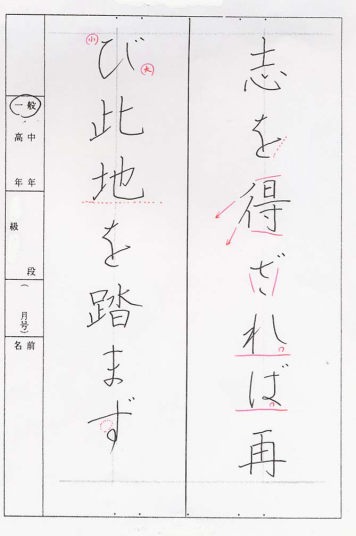 志を得ざれば再
び此地を踏まず
小
大
一般
高中
年年
級
段
(月号)
名前